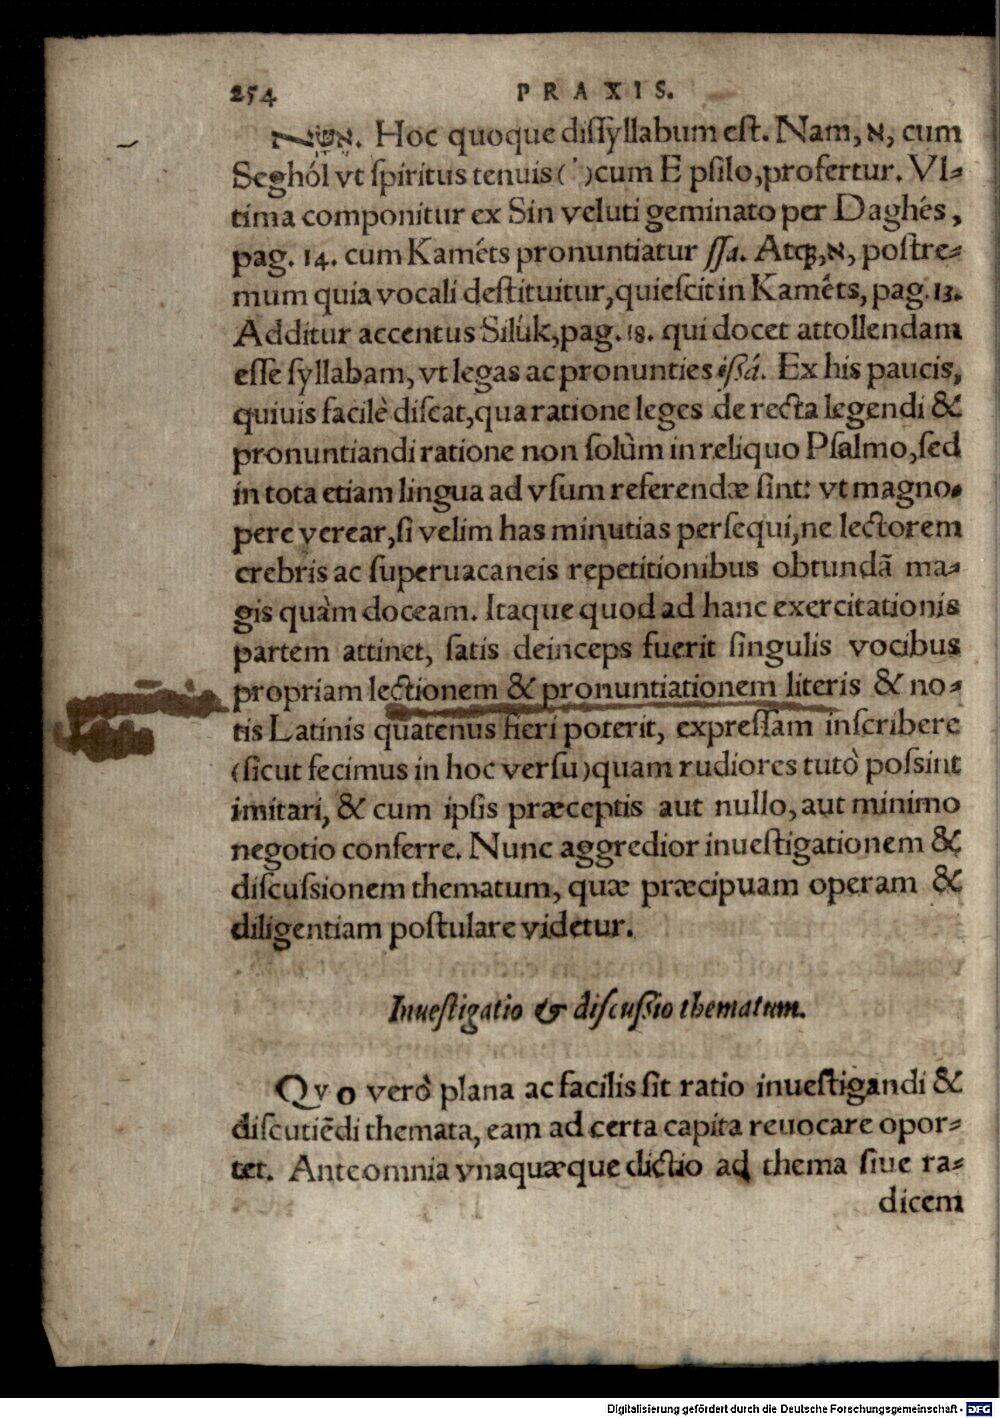 254 PRAXIS.
אֶשָּׂא. Hoc quoque dissyllabum est. Nam, א, cum
Seghól vt spiritus tenuis ( ̓ ) cum E psilo, profertur. Vl-
tima componitur ex Sin veluti geminato per Daghés,
pag. 14. cum Kaméts pronuntiatur ssa. Atq;, א, postre-
mum quia vocali destituitur, quiescit in Kaméts, pag. 13.
Additur accentus Silúk, pag. 18. qui docet attollendam
esse syllabam, vt legas ac pronunties issá. Ex his paucis,
quiuis facilè discat, qua ratione leges de recta legendi &
pronuntiandi ratione non solùm in reliquo Psalmo, sed
in tota etiam lingua ad vsum referendæ sint: vt magno-
pere verear, si velim has minutias persequi, ne lectorem
crebris ac superuacaneis repetitionibus obtundã ma-
gis quàm doceam. Itaque quod ad hanc exercitationis
partem attinet, satis deinceps fuerit singulis vocibus
propriam lectionem & pronuntiationem literis & no-
tis Latinis quatenus fieri poterit, expressam inscribere
(sicut fecimus in hoc versu) quam rudiores tutò possint
imitari, & cum ipsis præceptis aut nullo, aut minimo
negotio conferre. Nunc aggredior inuestigationem &
discussionem thematum, quæ præcipuam operam &
diligentiam postulare videtur.
Inuestigatio & discussio thematum.
Qvo verò plana ac facilis sit ratio inuestigandi &
discutiẽdi themata, eam ad certa capita reuocare opor-
tet. Ante omnia vnaquæque dictio ad thema siue ra-
dicem
Digitalisierung gefördert durch die Deutsche Forschungsgemeinschaft - DFG